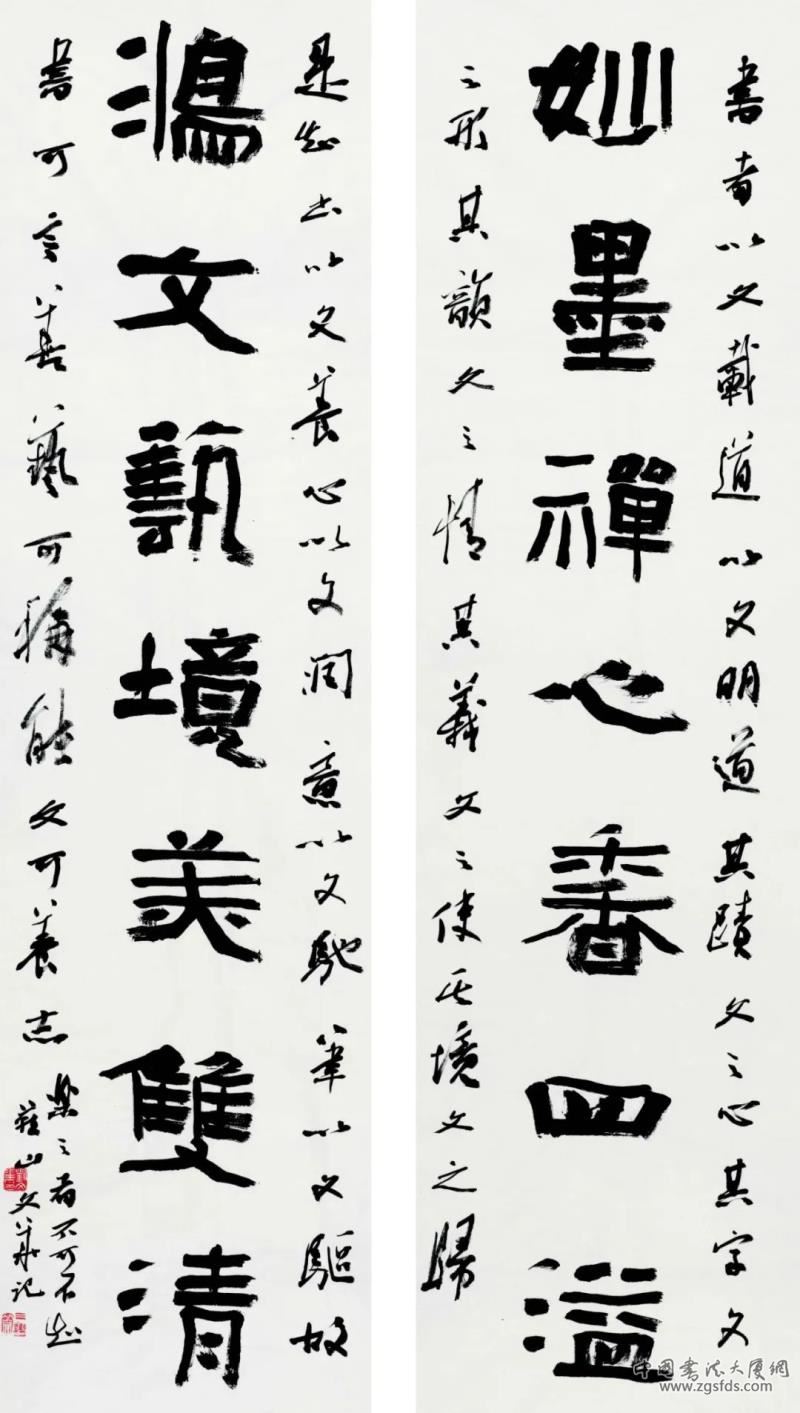 書者以文載道以文明道其蹟文之心其字文
妙墨禪心香四溢
之形其韻文之情其義文之使其境文之歸
是知書以文養心以文潤意以文馳筆以文驅故
鴻文藝境美雙清
書可言善藝可稱能文可養志
樂之者不可不知
山文華記
中國書法大厦網
www.zgsfds.com